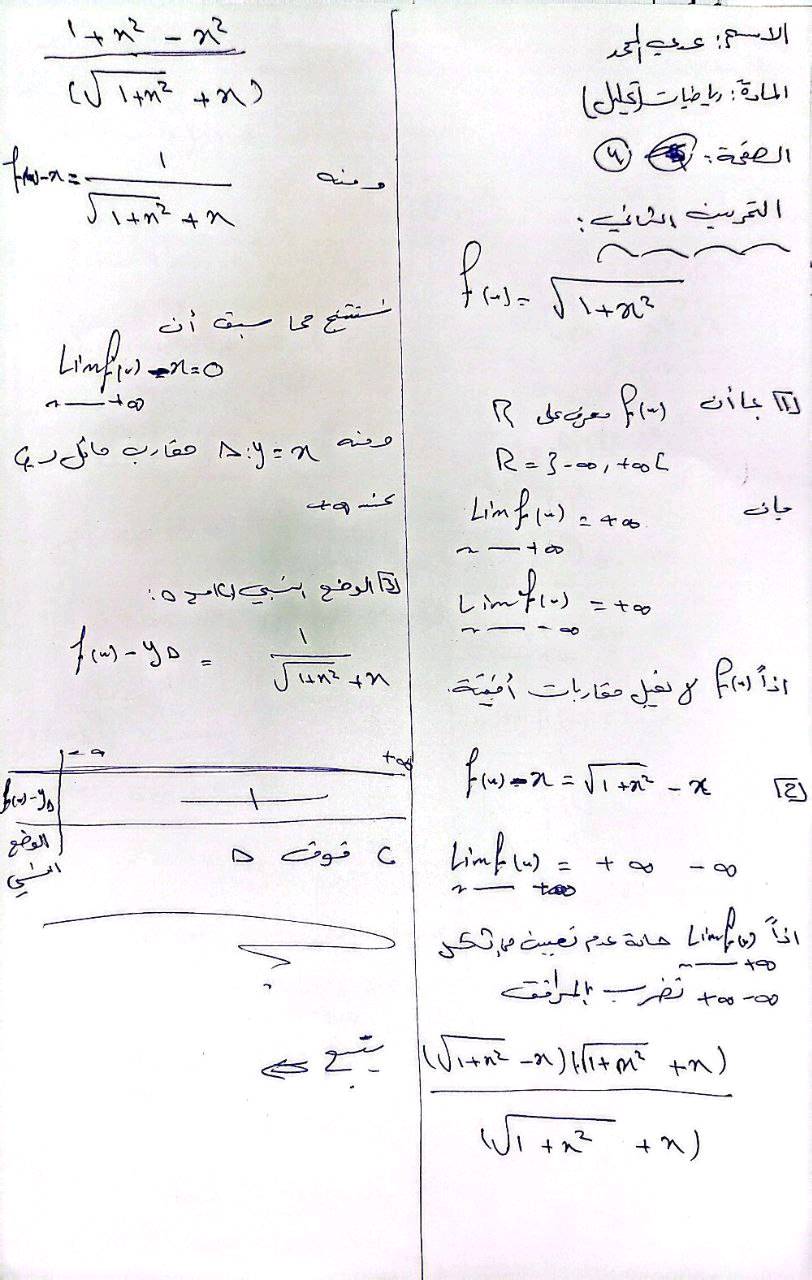 الاسم: عدي المحمد
المادة: رياضيات (تحليل)
الصفحة: ④
التمرين الثاني:
f(x) = √(1+x²)
[1] بما أن f(x) معرف على R
R = ]-∞, +∞[
فإن Lim f(x) = +∞
x → +∞
Lim f(x) = +∞
x → -∞
اذاً f(x) لا تقبل مقاربات أفقية.
[2] f(x) - x = √(1+x²) - x
Lim f(x) = +∞ -∞
x → +∞
اذاً Lim f(x) حالة عدم تعيين من الشكل
x → +∞
+∞ -∞ نضرب بالمرافق
(√(1+x²) - x)(√(1+x²) + x)
(√(1+x²) + x)
1 + x² - x²
(√(1+x²) + x)
ومنه f(x) - x = 1
√(1+x²) + x
نستنتج مما سبق أن
Lim f(x) - x = 0
x → +∞
ومنه Δ: y = x مقارب مائل لـ C
عند +∞
[3] الوضع النسبي لـ C مع Δ:
f(x) - yΔ = 1
√(1+x²) + x
-∞ +∞
f(x) - yΔ +
الوضع النسبي C فوق Δ
يتبع ⇐